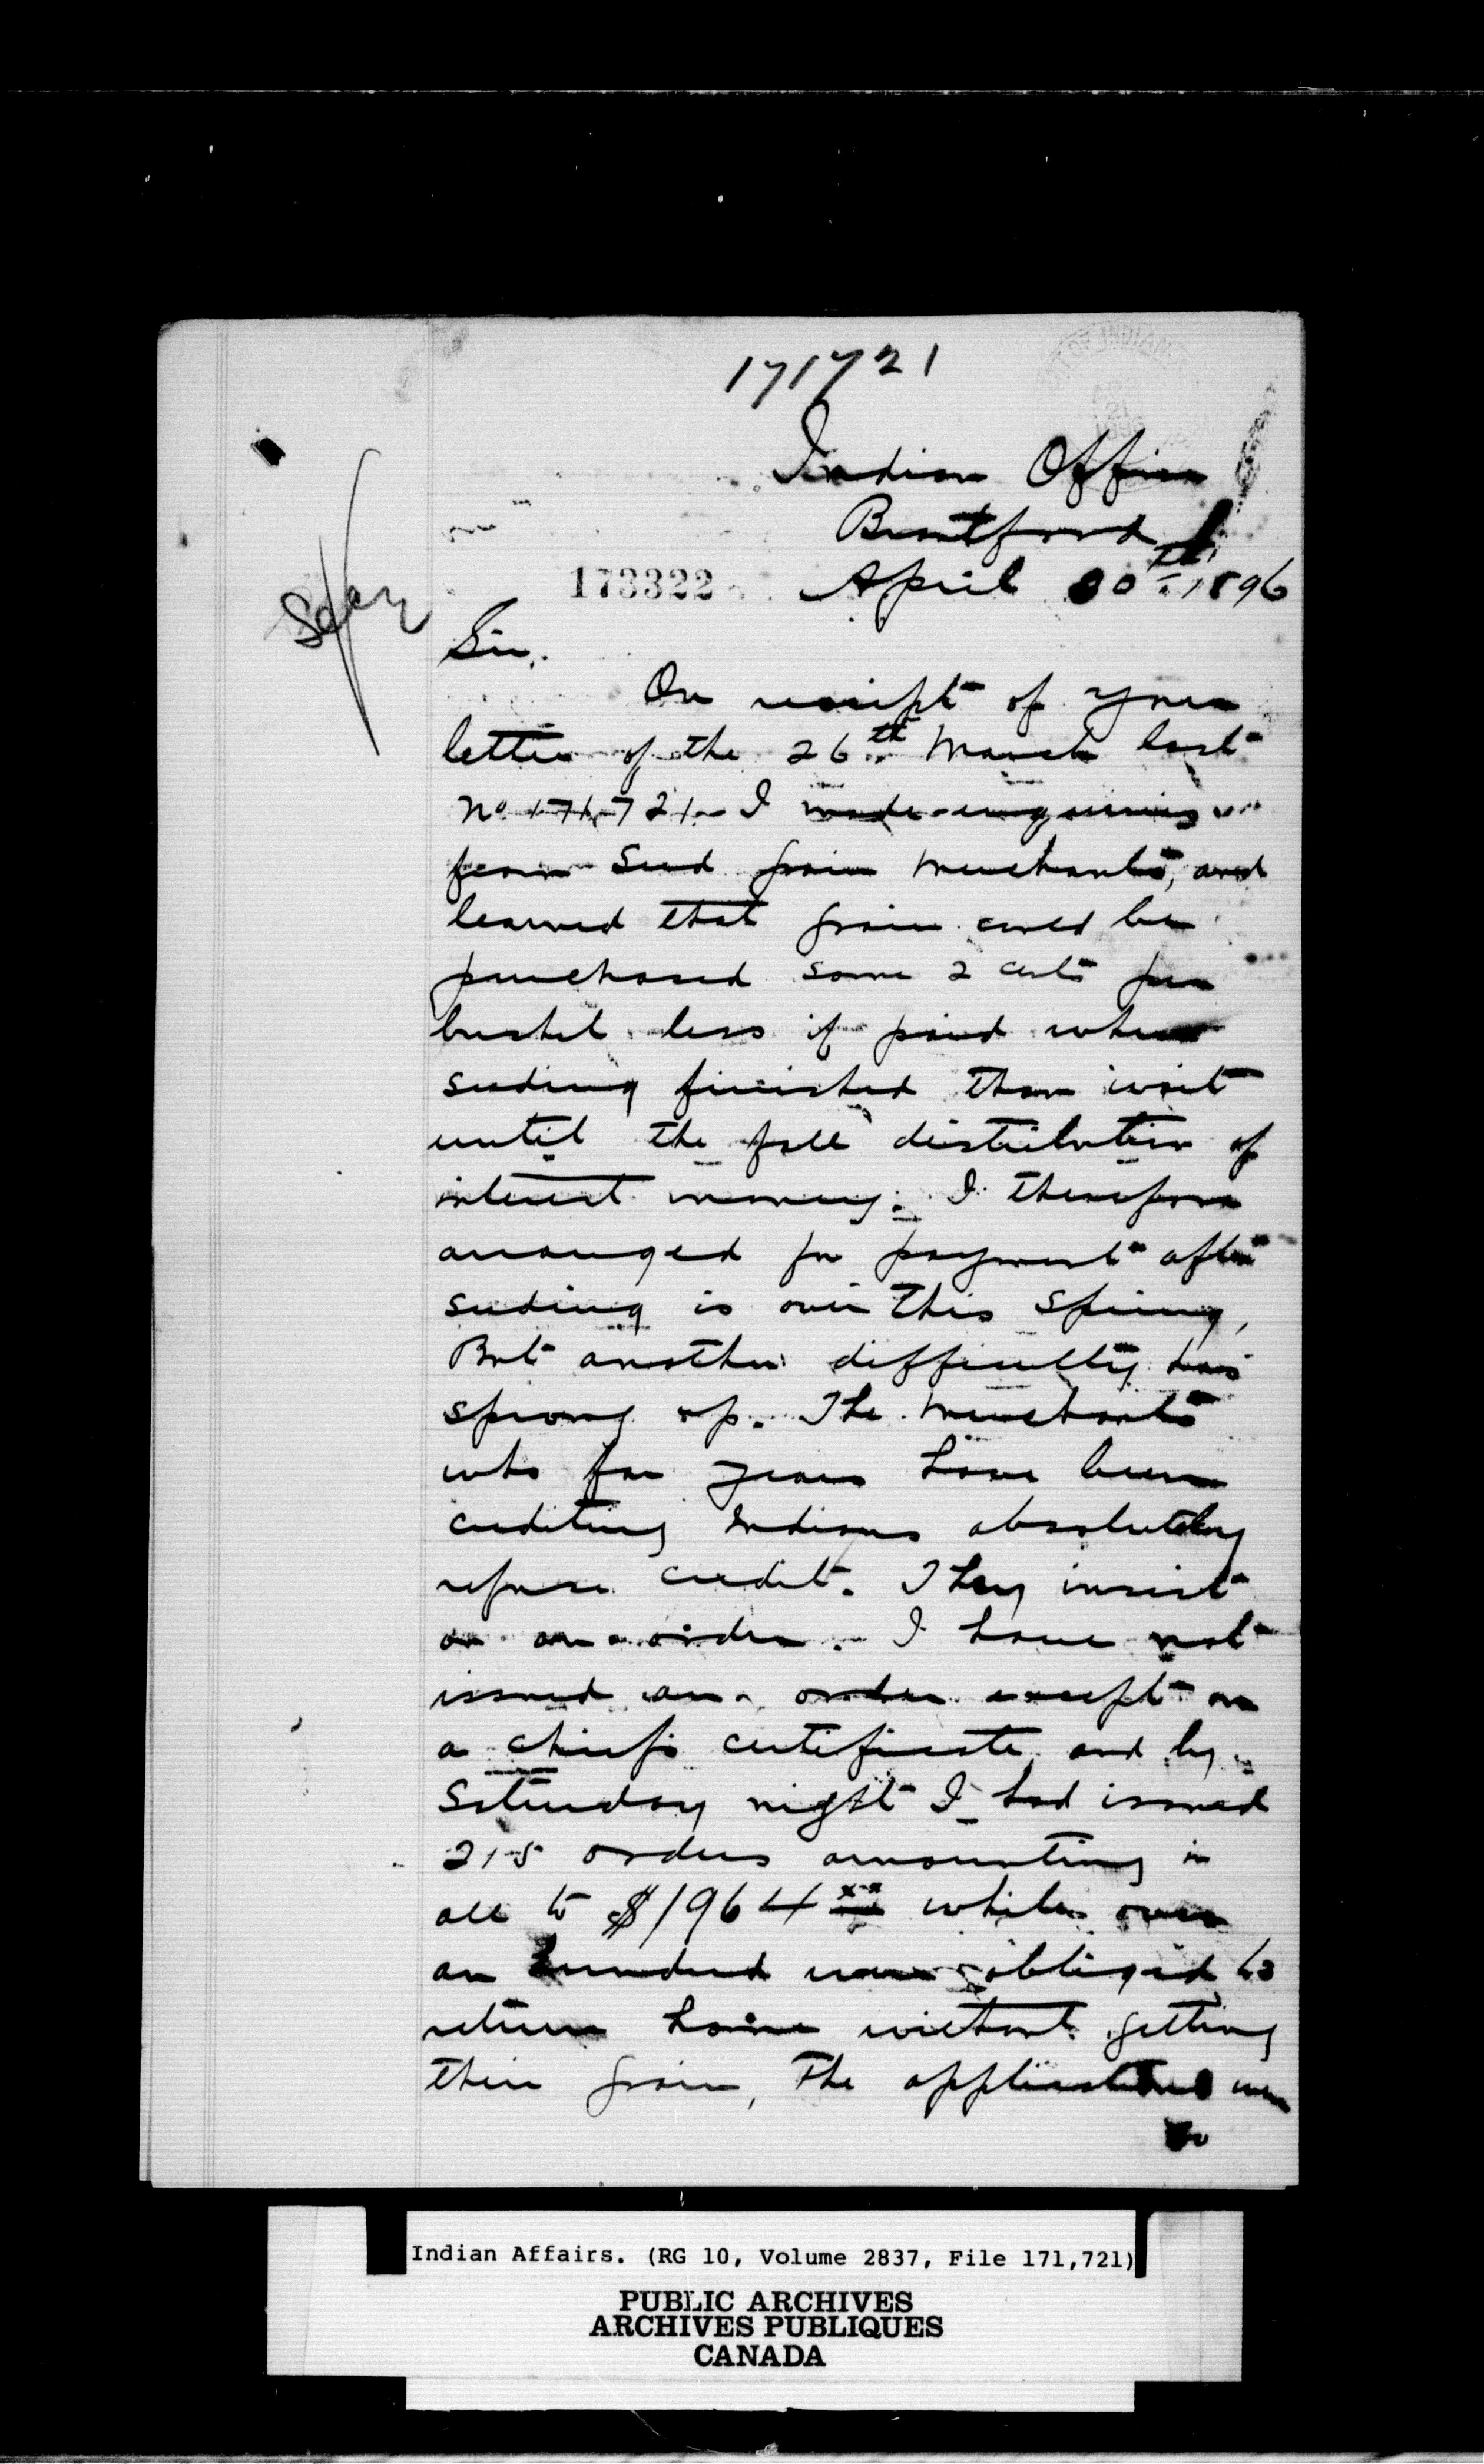 171721
DEPARTMENT OF INDIAN
APR
21
1896
Indian Office
Brantford
173322 April 20th 1896
Sir,
On receipt of your
letter of the 26th March last
No 171,721 I made enquiries
from Seed grain merchants, and
learned that grain could be
purchased some 2 cents per
bushel less if paid when
seeding finished than wait
until the fall distribution of
interest money. I therefore
arranged for payment after
seeding is over this Spring,
But another difficulty has
sprung up. The merchants
who for years have been
crediting Indians absolutely
refuse credit. They insist
on an order. I have not
issued an order except on
a chief's certificate and by
Saturday night I had issued
215 orders amounting in
all to $1964 xx while over
an hundred were obliged to
return home without getting
their grain, The applications were
so
Indian Affairs. (RG 10, Volume 2837, File 171,721)
PUBLIC ARCHIVES
ARCHIVES PUBLIQUES
CANADA